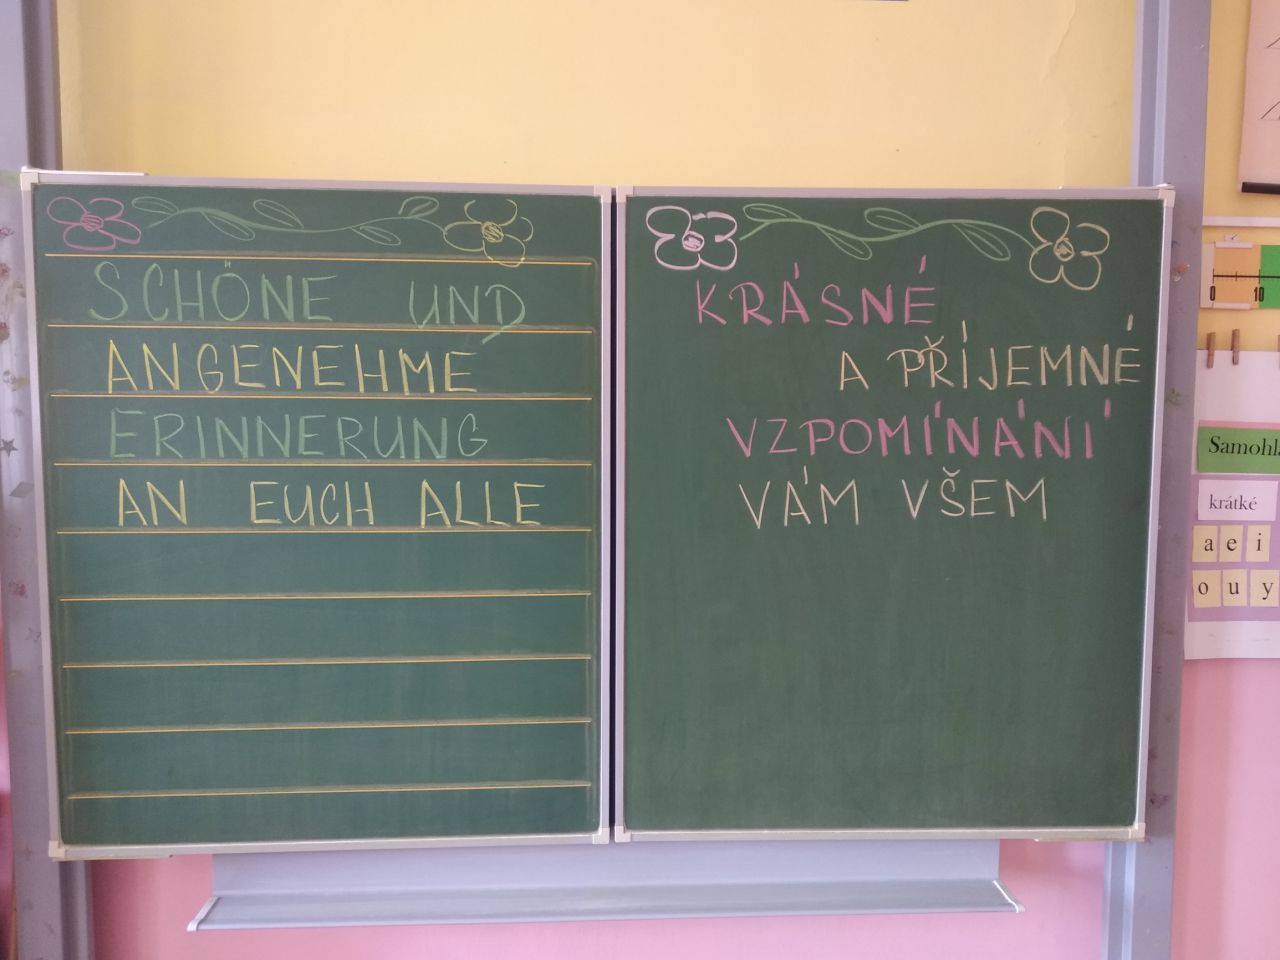 SCHÖNE UND
ANGENEHME
ERINNERUNG
AN EUCH ALLE
KRÁSNÉ
A PŘÍJEMNÉ
VZPOMÍNÁNÍ
VÁM VŠEM
0 10
krátké
a e i
o u y